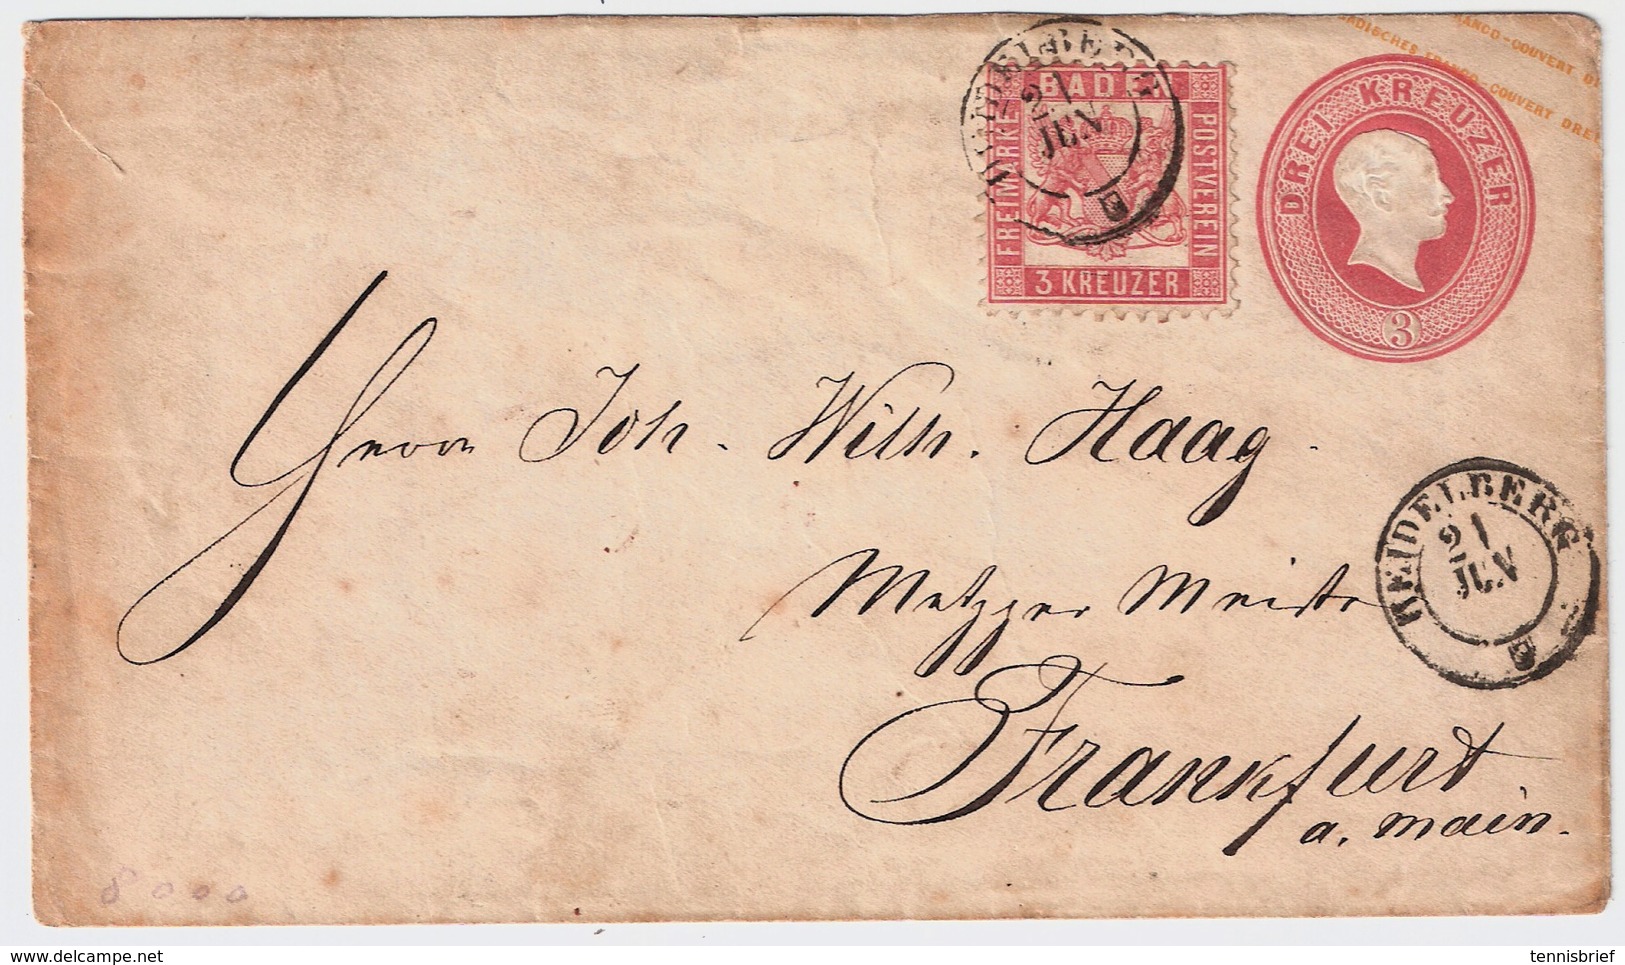 MANCO-COUVERT
BADISCHES FRANCO-COUVERT DRE
HEIDELBERG
21
JUN
BADEN
FREIMARKE
POSTVEREIN
3 KREUZER
DREI KREUZER
3
Herrn Joh. Wilh. Haag.
Metzger Meister
HEIDELBERG
21
JUN
Frankfurt
a. Main.
8000
www.delcampe.net
tennisbrief